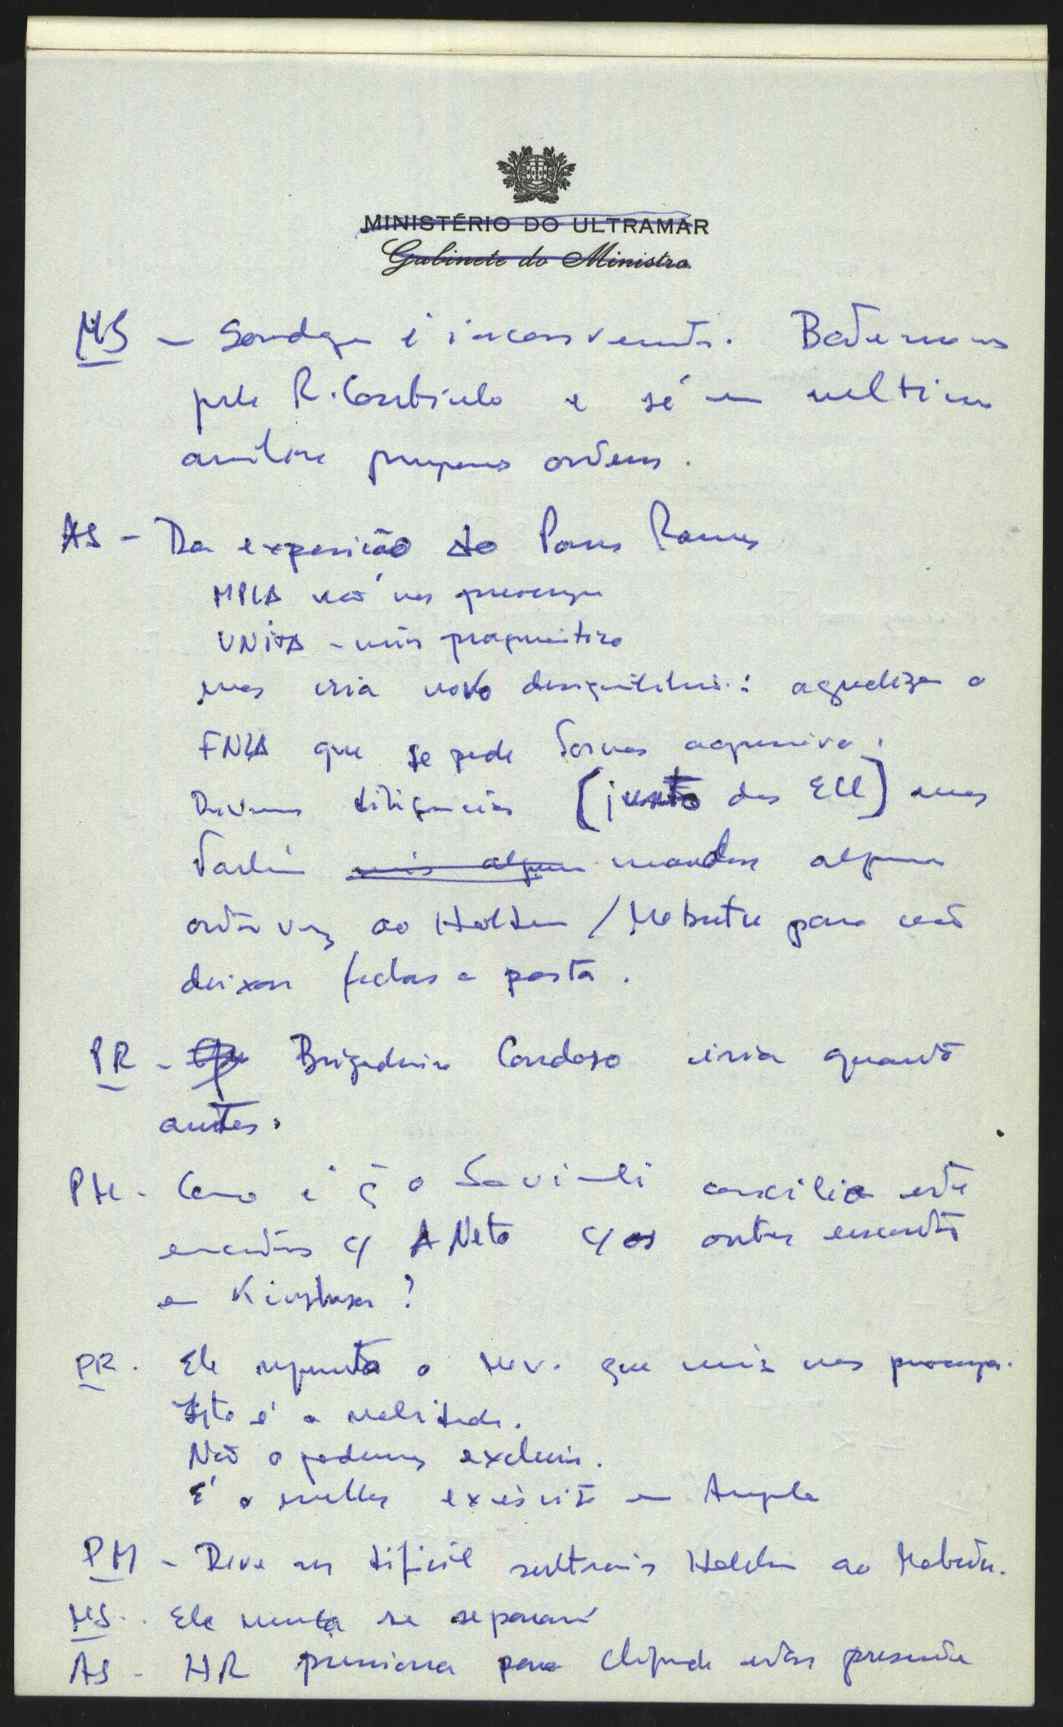 MINISTÉRIO DO ULTRAMAR
Gabinete do Ministro
MS - Sondagem é inconveniente. Batermo-nos
pela R. Conbinda e só em última
análise propomos ontem.
AS - Da exposição do Passos Ramos
MPLA não nos preocupa
UNITA - mais pragmático
mas cria novo desequilíbrio: agudiza a
FNLA que se pode tornar agressiva.
Devemos diligências [junto dos EU] mas
também mandar alguém
outra vez ao Holden / Mobutu para não
deixar fechar a porta.
PR - Brigadeiro Cardoso iria quanto
antes.
PM - Como é q o Savimbi concilia este
encontro c/ A Neto c/ os outros encontros
em Kinshasa?
PR. Ele representa o mov. que mais nos preocupa.
Isto é a realidade.
Não o podemos excluir.
É o melhor exército em Angola
PM - Deve ser difícil subtrair Holden ao Mobutu.
MS - Ele nunca se separará
AS - HR pressiona para Chipenda estar presente